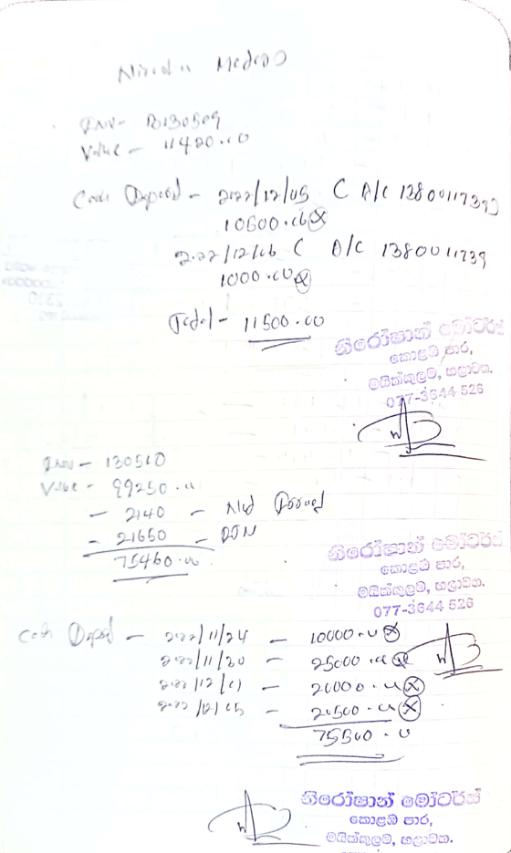 Inv - B130509
Value - 11420.00
Cash Deposit - 2022/12/05 C A/C 1380011739
10500.00
2022/12/06 C A/C 1380011739
1000.00
Total - 11500.00
නිරෝෂාන් මෝටර්ස්
කොළඹ පාර,
මයික්කුලම, හලාවත.
077-3644 526
Inv - 130510
Value - 99250.00
- 2140 - Not
- 21650 -
75460.00
නිරෝෂාන් මෝටර්ස්
කොළඹ පාර,
මයික්කුලම, හලාවත.
077-3644 526
Cash Deposit - 2022/11/24 - 10000.00
2022/11/30 - 25000.00
2022/12/01 - 20000.00
2022/12/05 - 20500.00
75500.00
නිරෝෂාන් මෝටර්ස්
කොළඹ පාර,
මයික්කුලම, හලාවත.